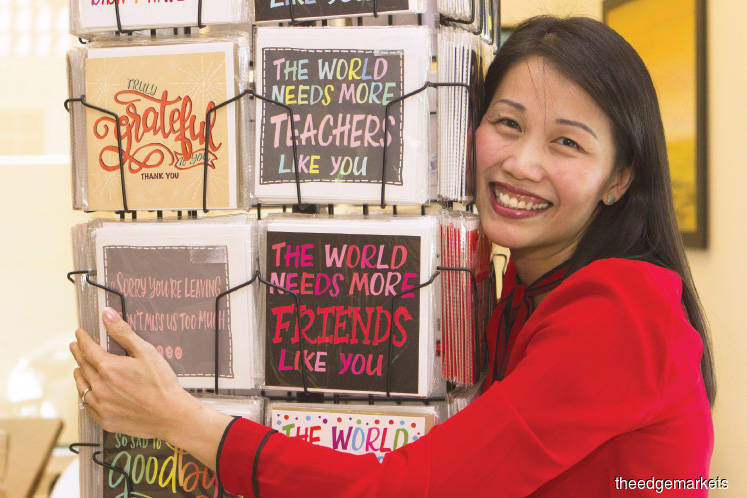 TRULY
Grateful
to you
THANK YOU
THE WORLD
NEEDS MORE
TEACHERS
LIKE YOU
SORRY YOU'RE LEAVING
DON'T MISS US TOO MUCH
THE WORLD
NEEDS MORE
FRIENDS
LIKE YOU
SO SAD TO
goodb
THE WORLD
theedgemarkets